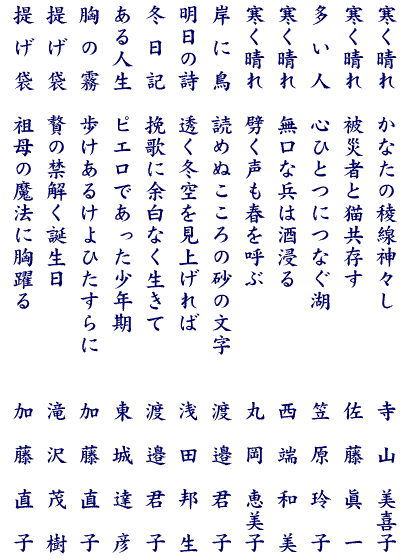 寒く晴れ かなたの稜線神々し 寺山美喜子
寒く晴れ 被災者と猫共存す 佐藤眞一
多い人 心ひとつにつなぐ湖 笠原玲子
寒く晴れ 無口な兵は酒浸る 西端和美
寒く晴れ 劈く声も春を呼ぶ 丸岡恵美子
岸に鳥 読めぬこころの砂の文字 渡邉君子
明日の詩 透く冬空を見上げれば 浅田邦生
冬日記 挽歌に余白なく生きて 渡邉君子
ある人生 ピエロであった少年期 東城達彦
胸の霧 歩けあるけよひたすらに 加藤直子
提げ袋 贅の禁解く誕生日 滝沢茂樹
提げ袋 祖母の魔法に胸躍る 加藤直子